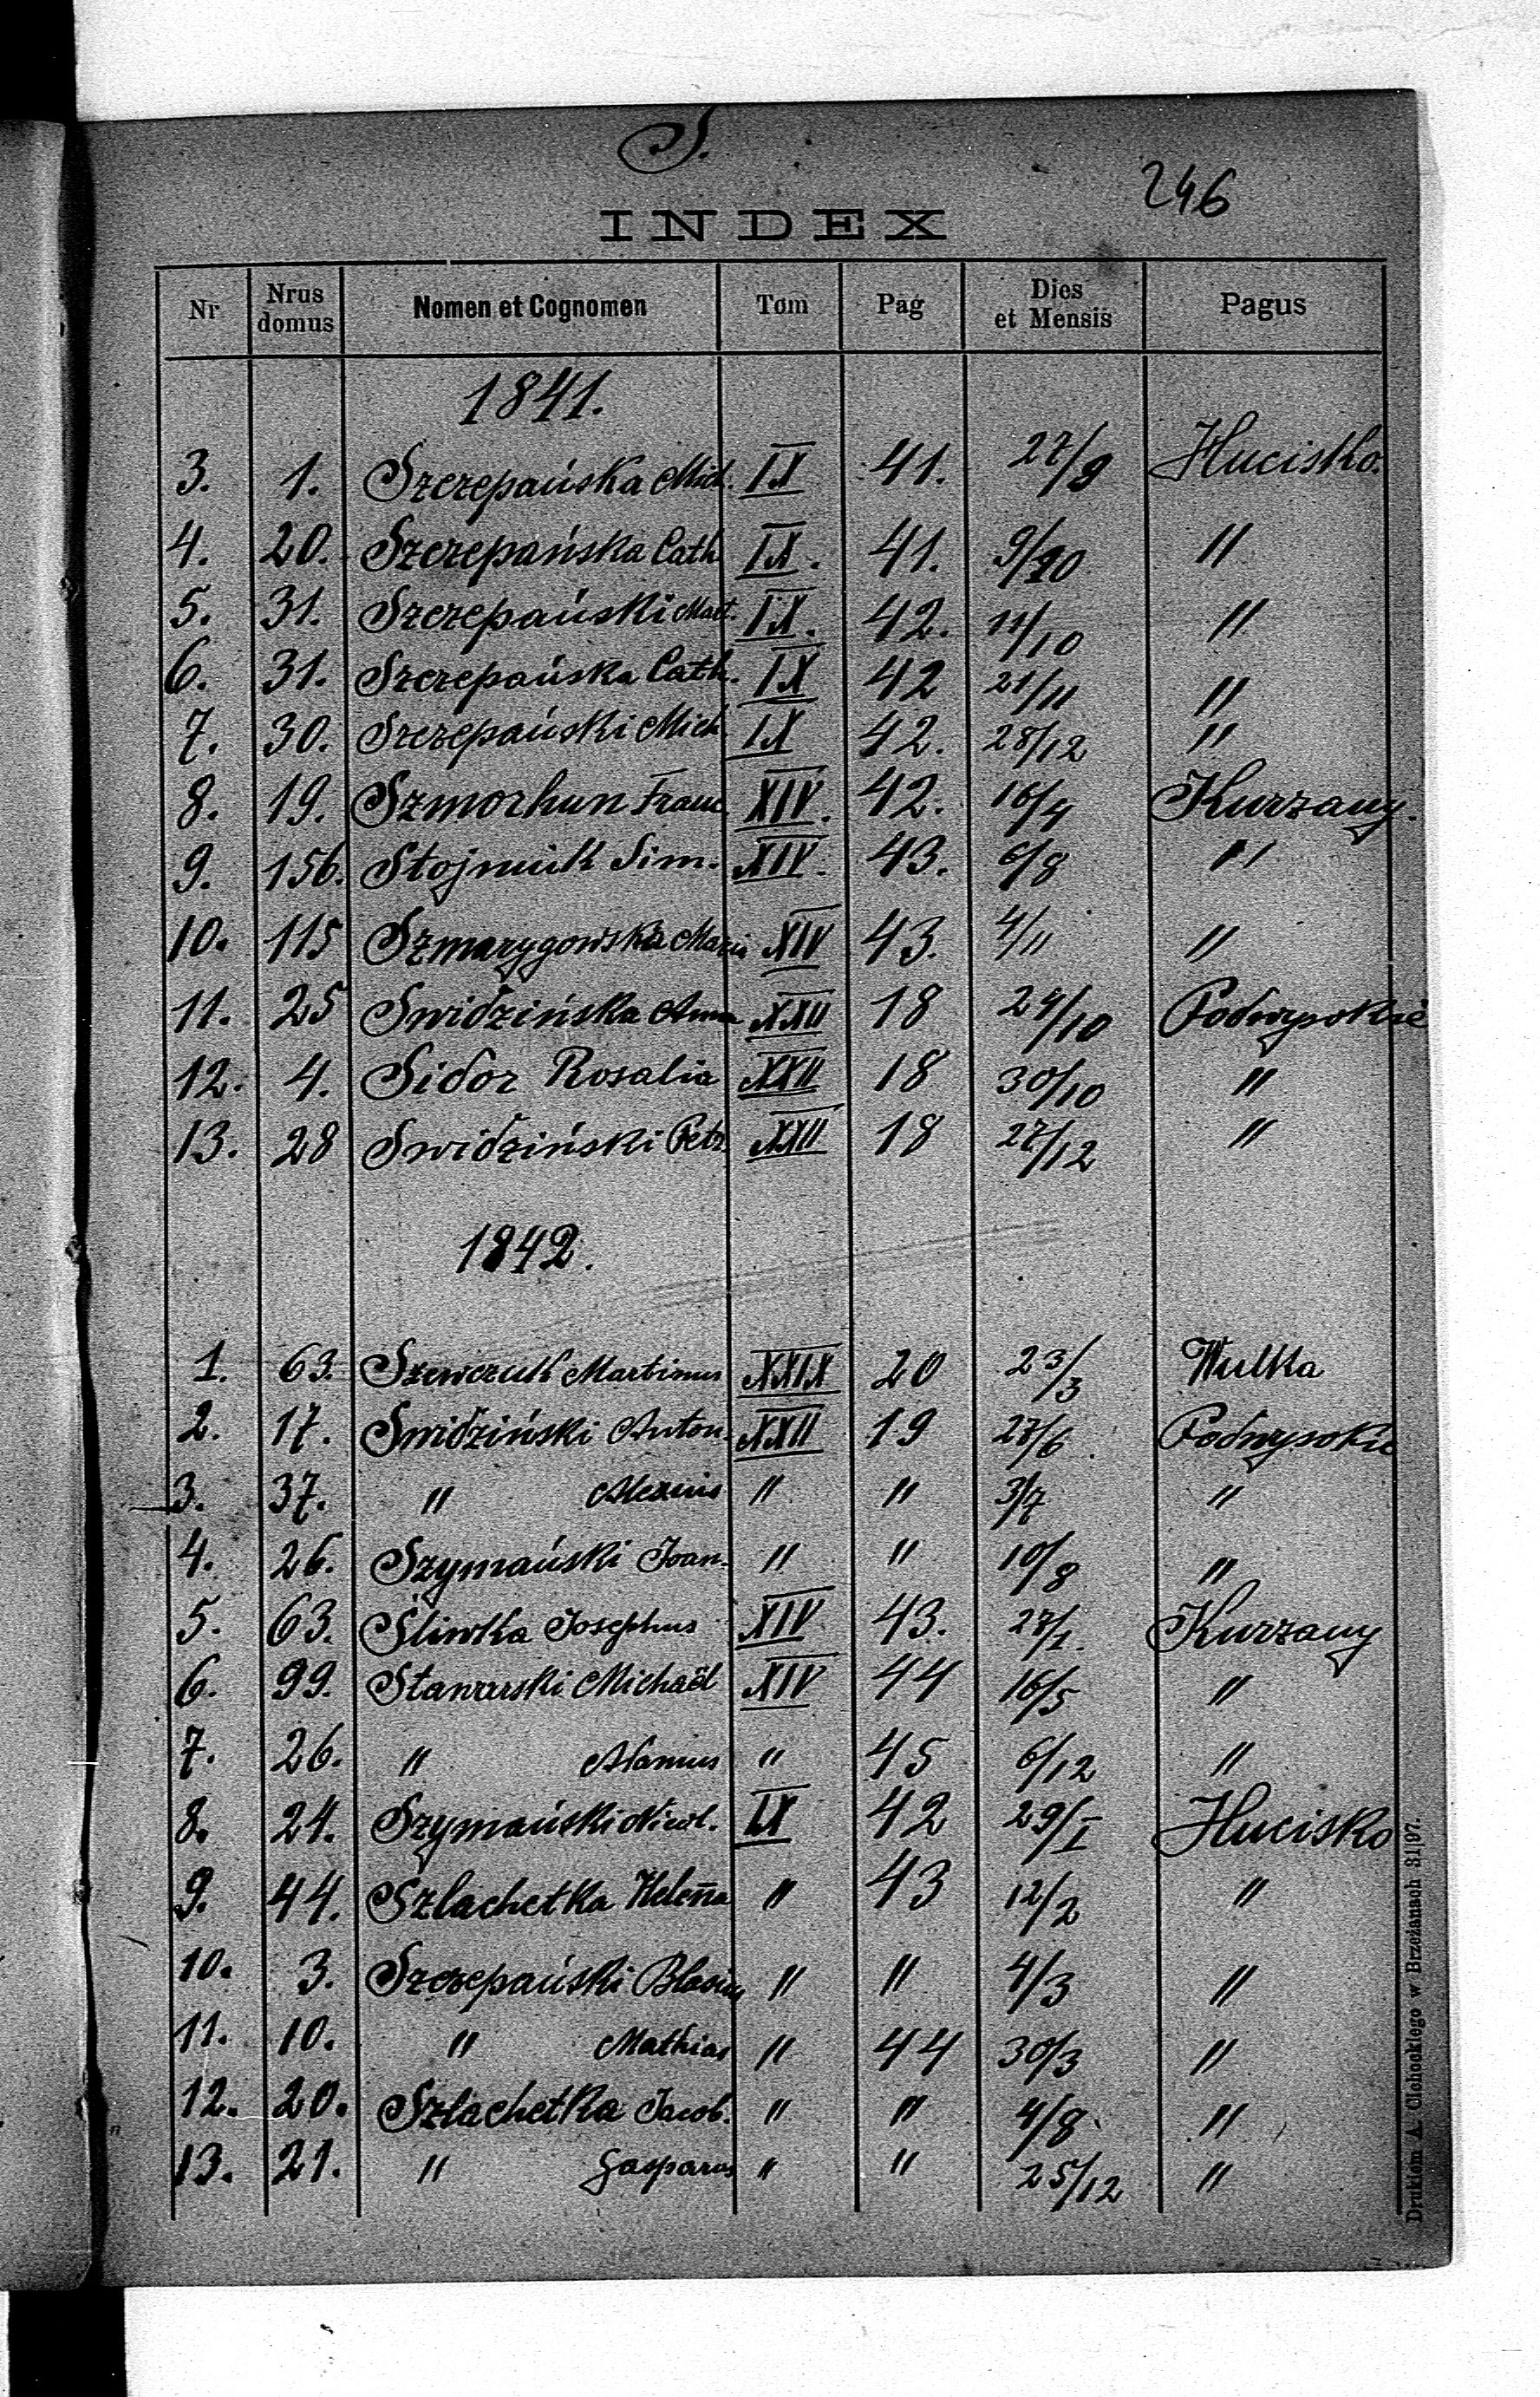 S.
246
INDEX
Nr Nrus domus Nomen et Cognomen Tom Pag Dies et Mensis Pagus
1841.
3. 1. Szczepańska Mich. IX 41. 27/9 Hucisko.
4. 20. Szczepańska Cath IX. 41. 9/10 "
5. 31. Szczepański Mat. IX. 42. 11/10 "
6. 31. Szczepańska Cath. IX 42 21/11 "
7. 30. Szczepański Mich IX 42. 28/12 "
8. 19. Szmorhun Franc XIV. 42. 16/4 Kurzany.
9. 156. Stojmiuk Sim. XIV. 43. 6/8 "
10. 115 Szmarygowska Maria XIV 43. 4/11 "
11. 25 Swidzińska Anna XXII 18 24/10 Podwysokie
12. 4. Sidor Rosalia XXII 18 30/10 "
13. 28 Swidziński Petr. XXII 18 27/12 "
1842.
1. 63. Szewczuk Martinus XXIX 20 23/3 Wulka
2. 17. Swidziński Anton. XXII 19 27/6 Podwysokie
3. 37. " Alexius " " 3/7 "
4. 26. Szymański Joan. " " 10/8 "
5. 63. Śliwka Josephus XIV 43. 27/I. Kurzany
6. 99. Stawarski Michaël XIV 44 16/5 "
7. 26. " Adamus " 45 6/12 "
8. 24. Szymański Nicol. IX 42 29/I Hucisko
9. 44. Szlachetka Helena " 43 12/2 "
10. 3. Szczepański Blasius " " 4/3 "
11. 10. " Mathias " 44 30/3 "
12. 20. Szlachetka Jacob. " " 4/8 "
13. 21. " Gasparus " " 25/12 "
Drukiem A. Cichockiego w Brzeżanach 31|97.